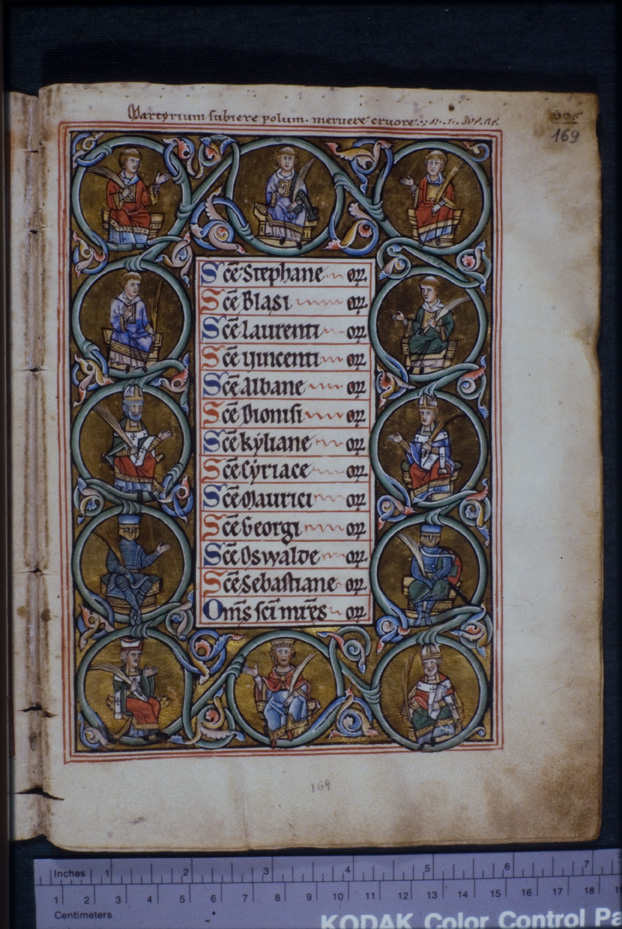 Martyrium subiere polum. meruere cruore
169
Scē Stephane or̄.
Scē Blasi or̄.
Scē Laurenti or̄.
Scē Vincenti or̄.
Scē Albane or̄.
Scē Dionisi or̄.
Scē Kyliane or̄.
Scē Cyriace or̄.
Scē Maurici or̄.
Scē Georgi or̄.
Scē Oswalde or̄.
Scē Sebastiane or̄.
Om̄s sc̄i mr̄es or̄.
169
Inches 1 2 3 4 5 6 7
1 2 3 4 5 6 7 8 9 10 11 12 13 14 15 16 17 18
Centimeters
KODAK Color Control Pa